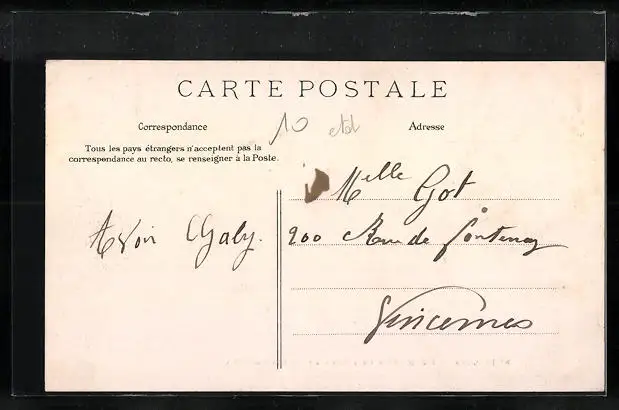 CARTE POSTALE
Correspondance
10
Adresse
Tous les pays étrangers n'acceptent pas la
correspondance au recto, se renseigner à la Poste.
Melle Got
A voir Gaby.
200 Rue de Fontenay
Vincennes